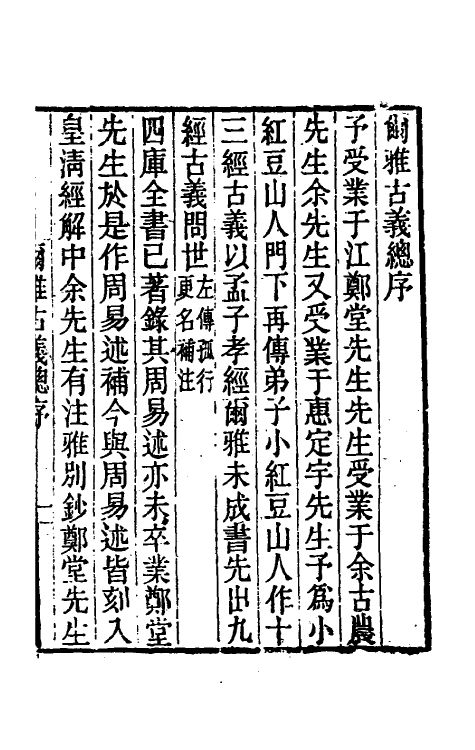 爾雅古義總序
予受業于江鄭堂先生先生受業于余古農
先生余先生又受業于惠定宇先生予爲小
紅豆山人門下再傳弟子小紅豆山人作十
三經古義以孟子孝經爾雅未成書先出九
經古義問世左傳孤行更名補注
四庫全書已著錄其周易述亦未卒業鄭堂
先生於是作周易述補今與周易述皆刻入
皇淸經解中余先生有注雅別鈔鄭堂先生
爾雅古義總序 一